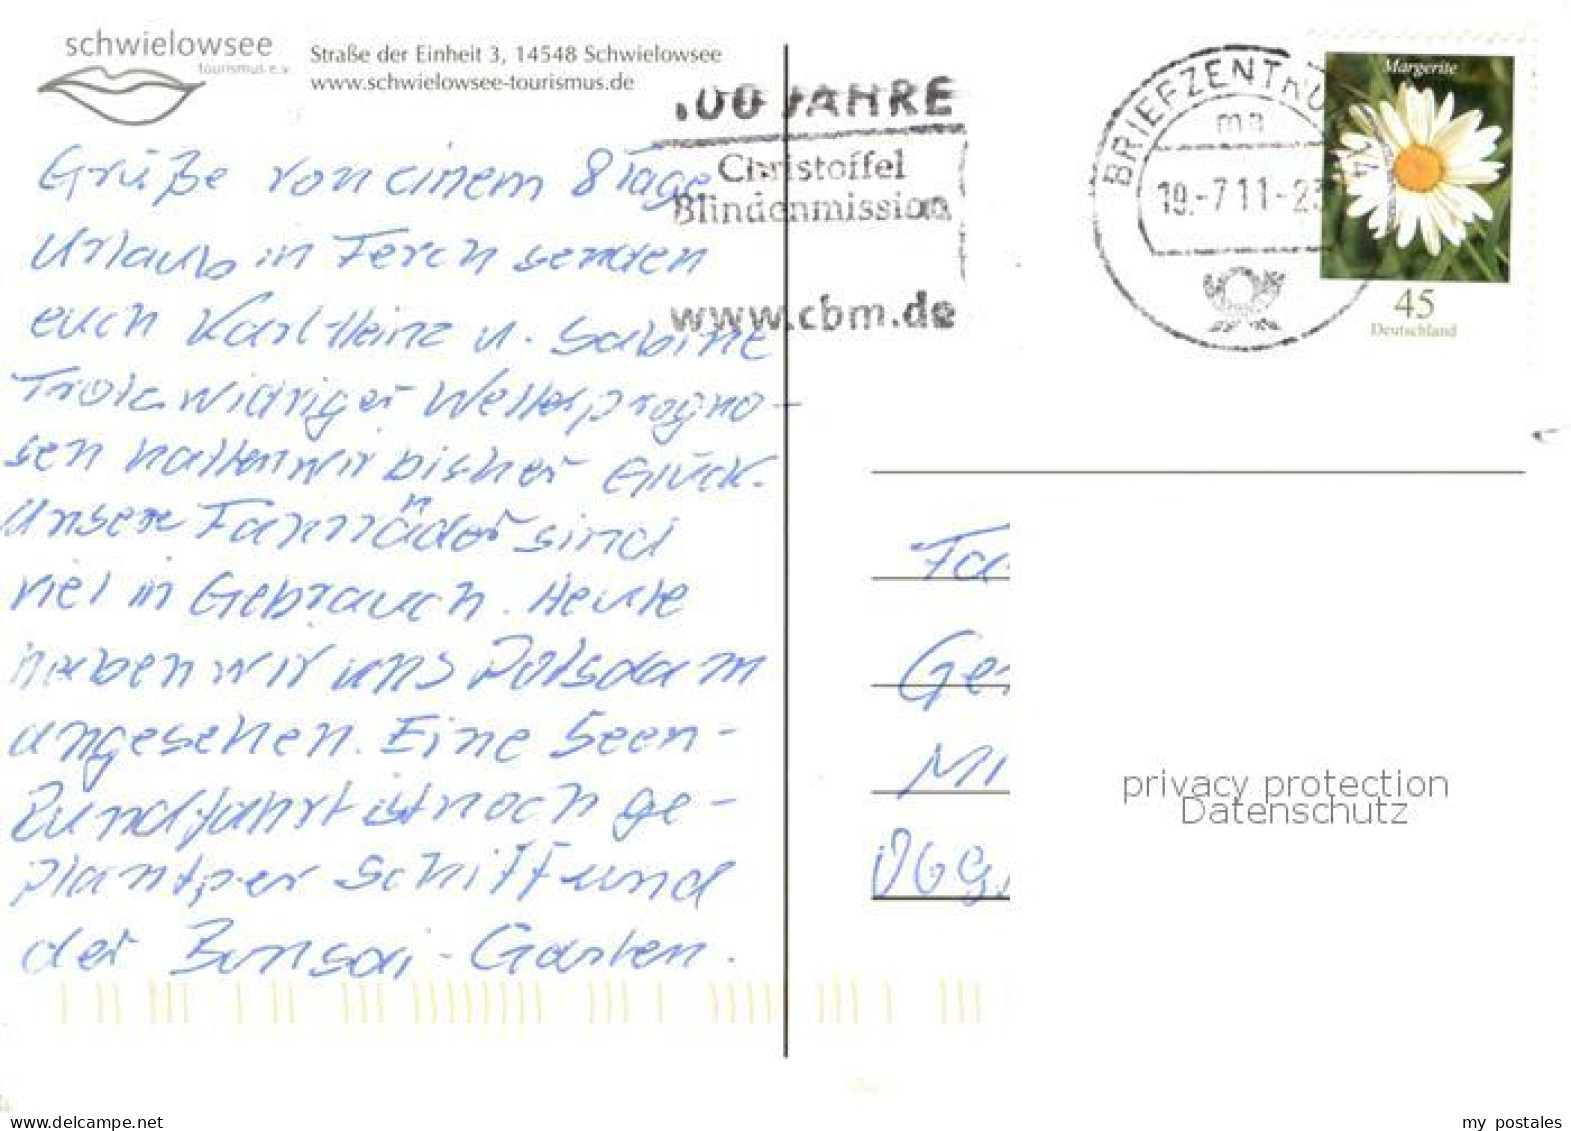 schwielowsee
tourismus e.v.
Straße der Einheit 3, 14548 Schwielowsee
www.schwielowsee-tourismus.de
Grüße von einem 8 Tage
Urlaub in Ferch senden
euch Karl-Heinz u. Sabine
Trotz widriger Wetterprogno-
sen hatten wir bisher Glück.
Unsere Fahrräder sind
viel in Gebrauch. Heute
haben wir uns Potsdam
angesehen. Eine Seen-
Rundfahrt ist noch ge-
plant per Schiff und
der Bonsai-Garten.
100 JAHRE
Christoffel
Blindenmission
www.cbm.de
BRIEFZENTRUM 14
ma
19.-7.11-23
Margerite
45
Deutschland
Fa
Ge
Mi
privacy protection
Datenschutz
www.delcampe.net
my_postales